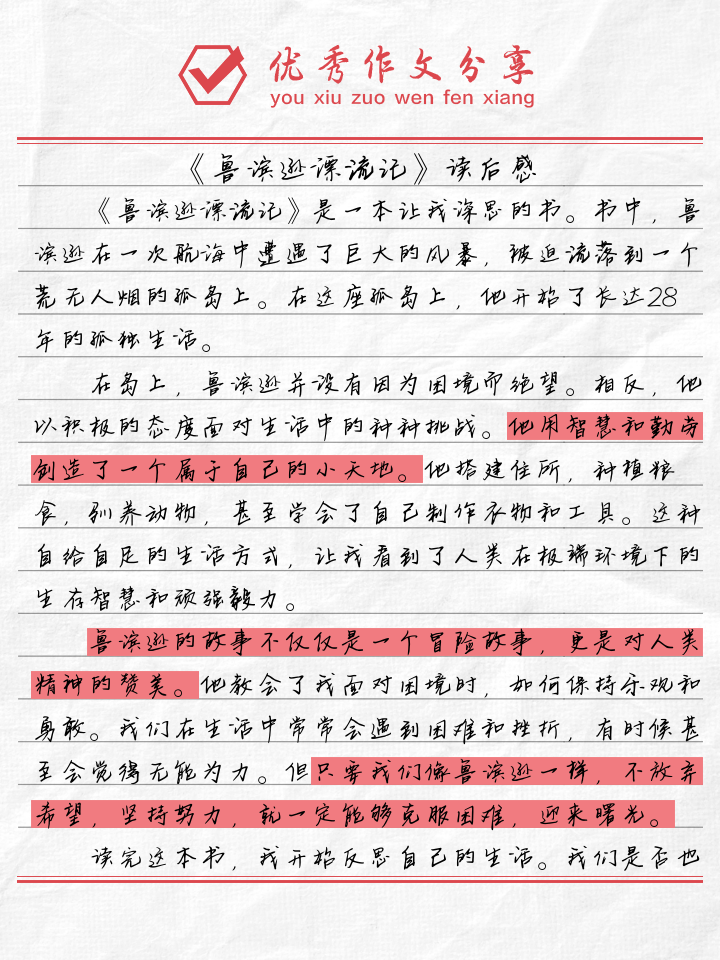 优秀作文分享
you xiu zuo wen fen xiang
《鲁滨逊漂流记》读后感
《鲁滨逊漂流记》是一本让我深思的书。书中，鲁
滨逊在一次航海中遭遇了巨大的风暴，被迫流落到一个
荒无人烟的孤岛上。在这座孤岛上，他开始了长达28
年的孤独生活。
在岛上，鲁滨逊并没有因为困境而绝望。相反，他
以积极的态度面对生活中的种种挑战。他用智慧和勤劳
创造了一个属于自己的小天地。他搭建住所，种植粮
食，驯养动物，甚至学会了自己制作衣物和工具。这种
自给自足的生活方式，让我看到了人类在极端环境下的
生存智慧和顽强毅力。
鲁滨逊的故事不仅仅是一个冒险故事，更是对人类
精神的赞美。他教会了我面对困境时，如何保持乐观和
勇敢。我们在生活中常常会遇到困难和挫折，有时候甚
至会觉得无能为力。但只要我们像鲁滨逊一样，不放弃
希望，坚持努力，就一定能够克服困难，迎来曙光。
读完这本书，我开始反思自己的生活。我们是否也